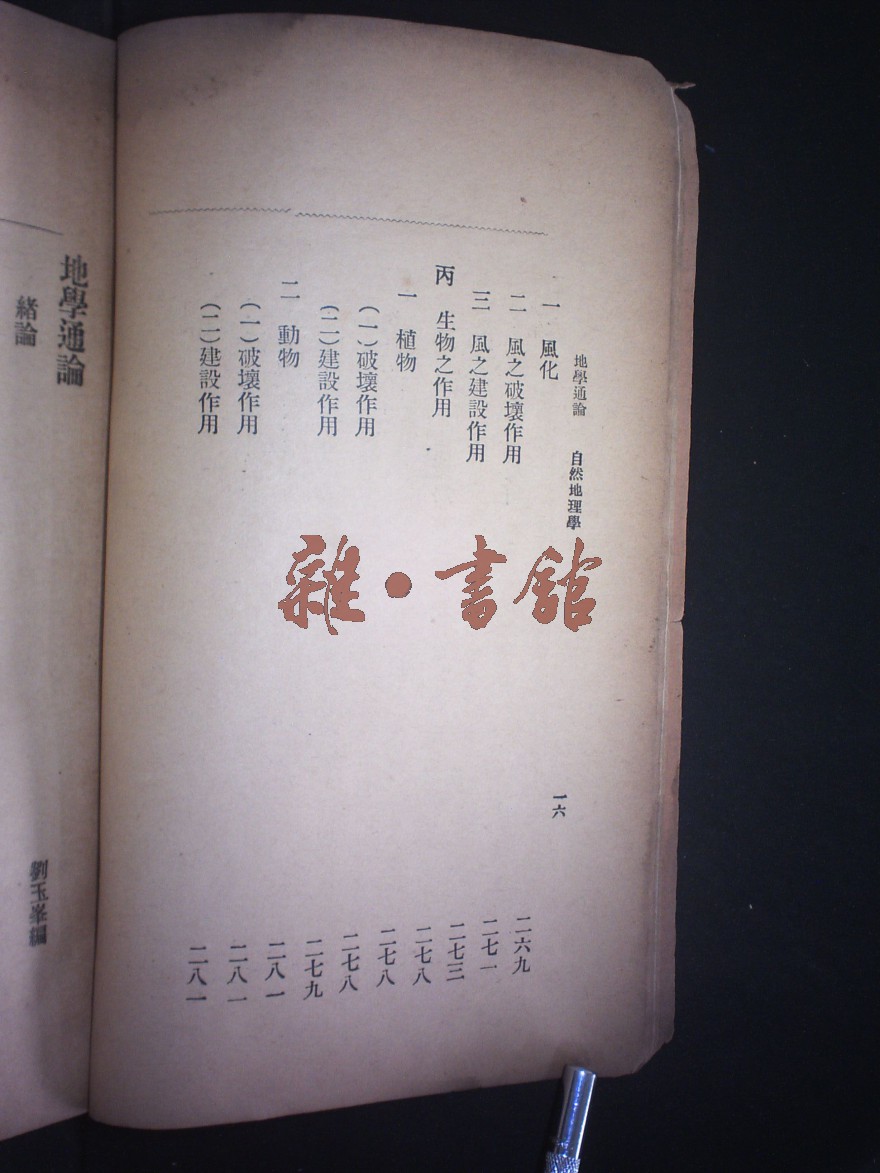 地學通論　自然地理學　一六
一　風化　二六九
二　風之破壞作用　二七一
三　風之建設作用　二七三
丙　生物之作用　二七八
一　植物　二七八
（一）破壞作用　二七八
（二）建設作用　二七九
二　動物　二八一
（一）破壞作用　二八一
（二）建設作用　二八一
雜・書館
地學通論
緒論
劉玉峯編